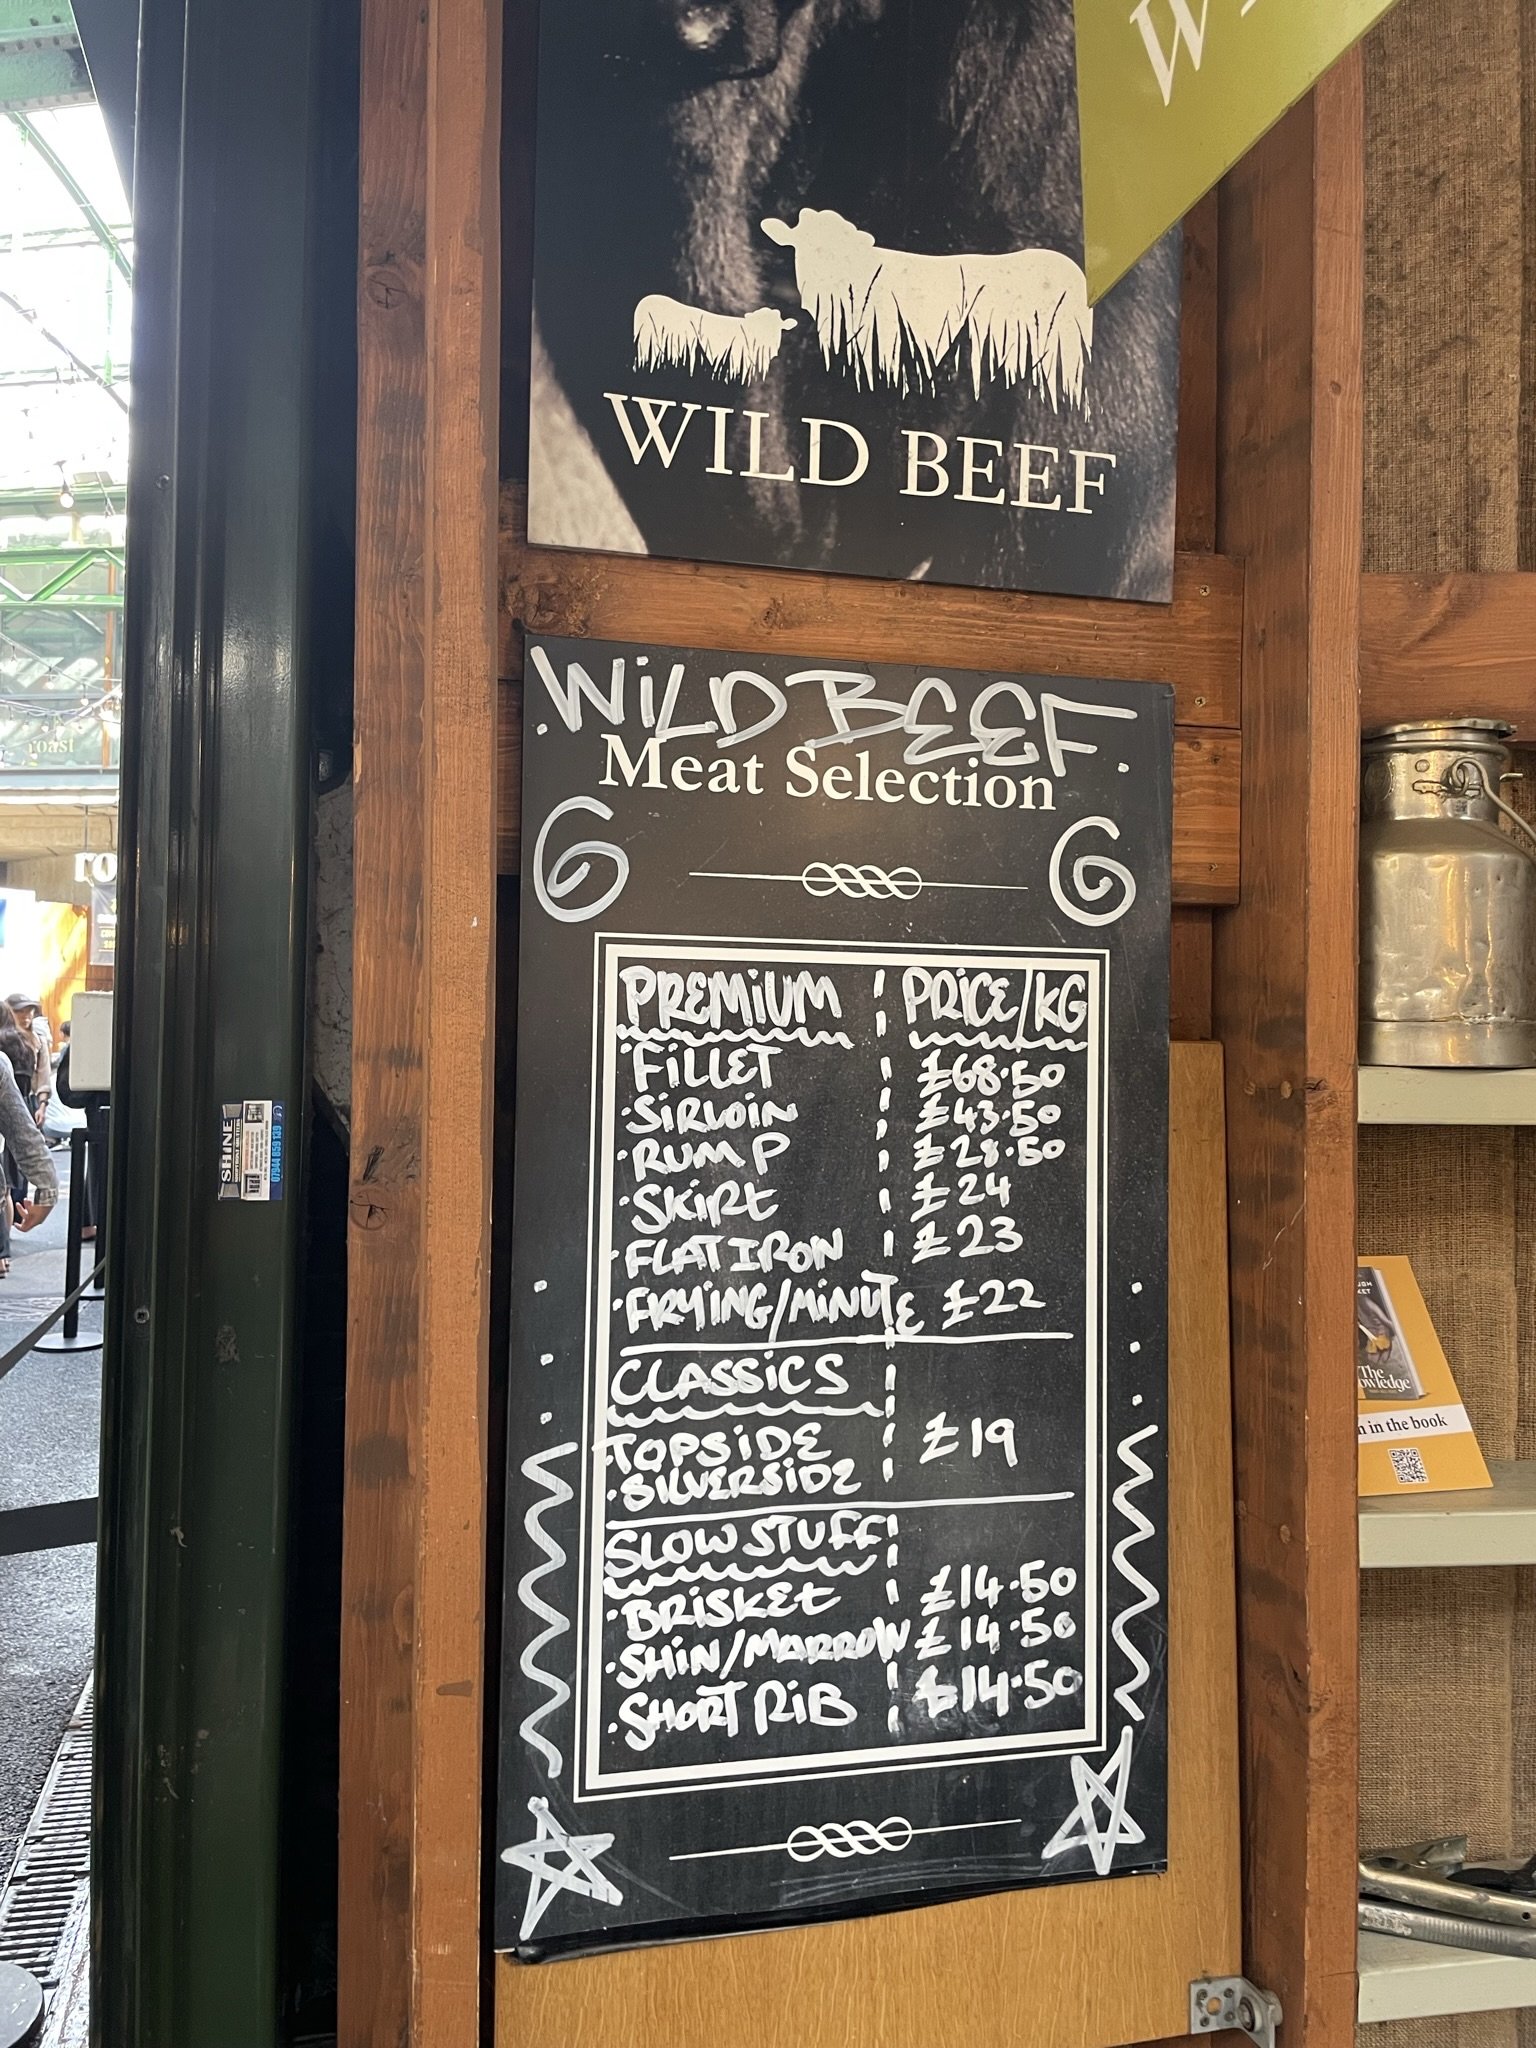 W
WILD BEEF
.WiLD BEEF.
Meat Selection
PREMiUM PRiCE/KG
·FiLLET £68·50
·SiRLOiN £43·50
·RUMP £28·50
·SKiRt £24
·FLAT IRON £23
·FRYiNG/MiNUTE £22
CLASSiCS
·TOPSiDE £19
·SiLVERSiDE
SLOW STUFF
·BRiSKEt £14·50
·SHiN/MARROW £14·50
·SHORT RiB £14·50
roast
ro
SHINE
07944 859 139
The
owledge
n in the book